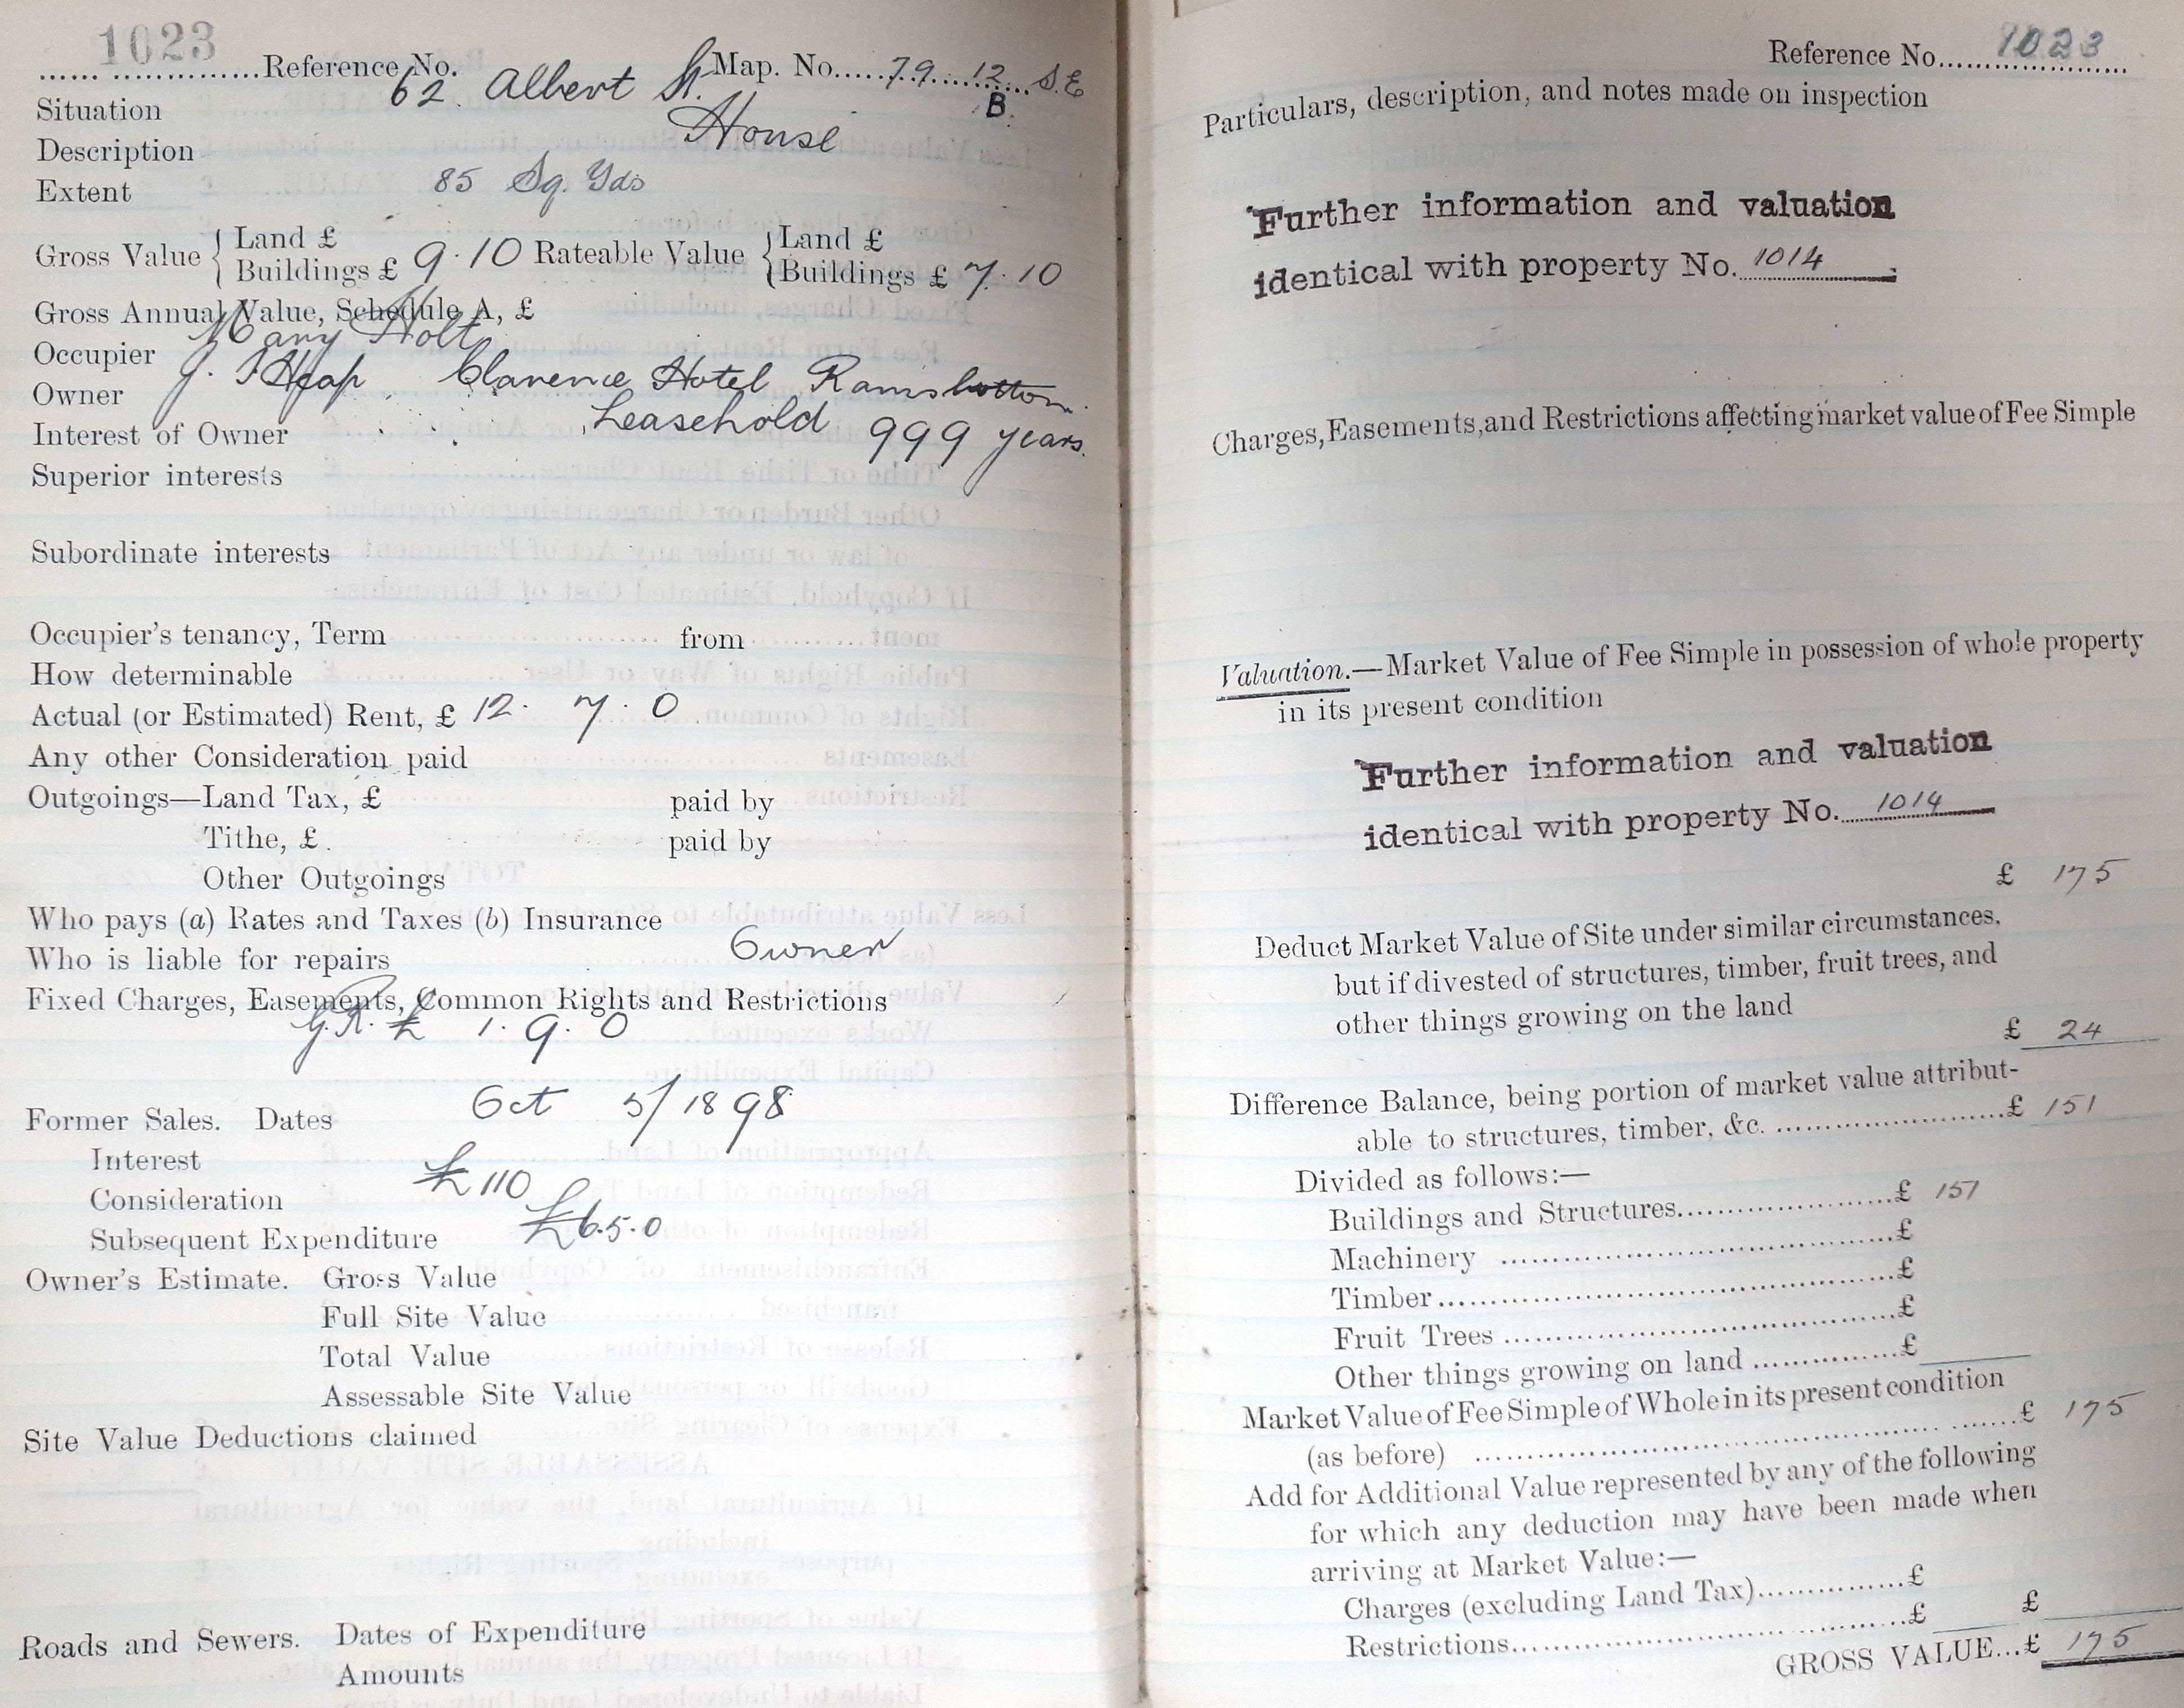 1023
Reference No. Map. No. 79 12 S.E
B.
Situation 62 Albert St.
Description House
Extent 85 Sq. Yds
Gross Value { Land £ Rateable Value { Land £
Buildings £ 9.10 Buildings £ 7.10
Gross Annual Value, Schedule A, £
Occupier Mary Holt
Owner J. Heap Clarence Hotel Ramsbottom
Interest of Owner Leasehold 999 years.
Superior interests
Subordinate interests
Occupier's tenancy, Term from
How determinable
Actual (or Estimated) Rent, £ 12. 7. 0
Any other Consideration paid
Outgoings—Land Tax, £ paid by
Tithe, £ paid by
Other Outgoings
Who pays (a) Rates and Taxes (b) Insurance
Who is liable for repairs Owner
Fixed Charges, Easements, Common Rights and Restrictions
G.R. £ 1. 9. 0
Former Sales. Dates Oct 5/1898
Interest
Consideration £110
Subsequent Expenditure £6.5.0
Owner's Estimate. Gross Value
Full Site Value
Total Value
Assessable Site Value
Site Value Deductions claimed
Roads and Sewers. Dates of Expenditure
Amounts
Reference No. 1023
Particulars, description, and notes made on inspection
Further information and valuation
identical with property No. 1014
Charges, Easements, and Restrictions affecting market value of Fee Simple
Valuation.—Market Value of Fee Simple in possession of whole property
in its present condition
Further information and valuation
identical with property No. 1014
£ 175
Deduct Market Value of Site under similar circumstances,
but if divested of structures, timber, fruit trees, and
other things growing on the land
£ 24
Difference Balance, being portion of market value attribut-
able to structures, timber, &c. £ 151
Divided as follows:—
Buildings and Structures £ 151
Machinery £
Timber £
Fruit Trees £
Other things growing on land £
Market Value of Fee Simple of Whole in its present condition
(as before) £ 175
Add for Additional Value represented by any of the following
for which any deduction may have been made when
arriving at Market Value:—
Charges (excluding Land Tax) £
Restrictions £ £
GROSS VALUE...£ 175